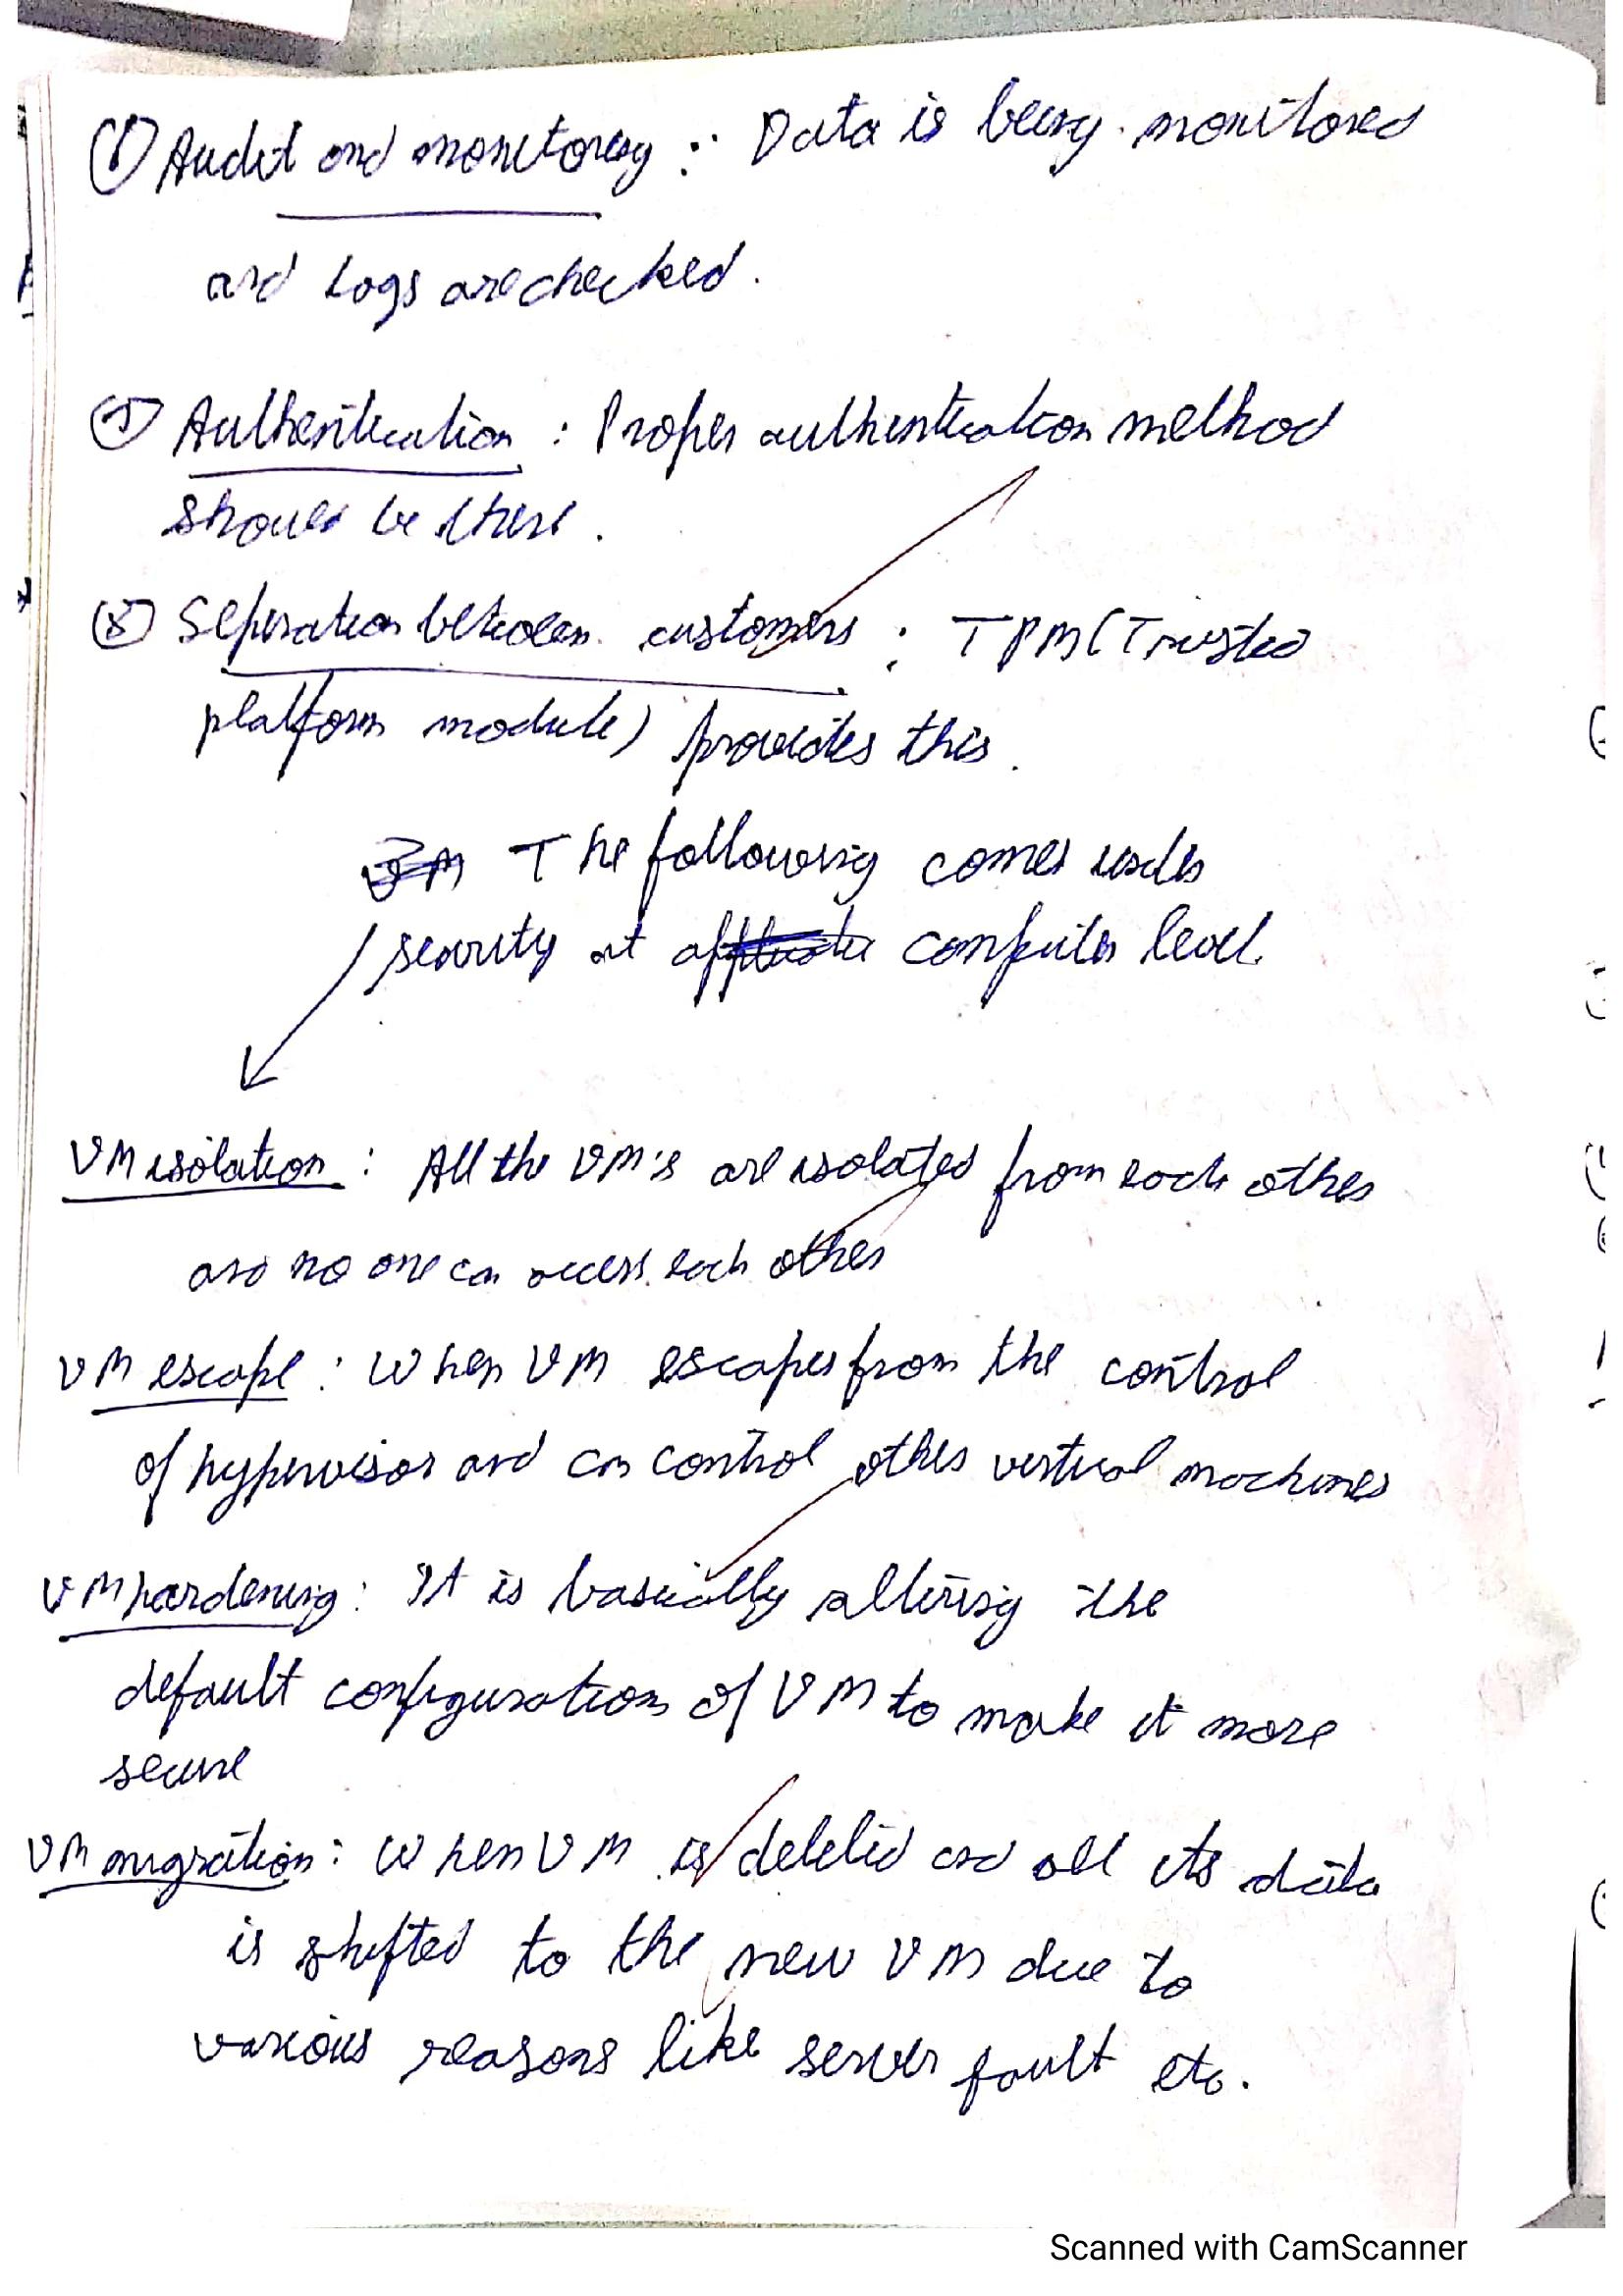 ⑥ Audit and monitoring : Data is being monitored
and Logs are checked.
⑦ Authentication : Proper authentication method
should be there.
⑧ Seperation between customers : TPM (Trusted
platform module) provides this.
The following comes under
security at computer level.
VM isolation : All the VM's are isolated from each other
and no one can access each other
VM escape : When VM escapes from the control
of hypervisor and can control other vertical machines
VM hardening : It is basically altering the
default configuration of VM to make it more
secure
VM migration : When VM is deleted and all its data
is shifted to the new VM due to
various reasons like server fault etc.
Scanned with CamScanner